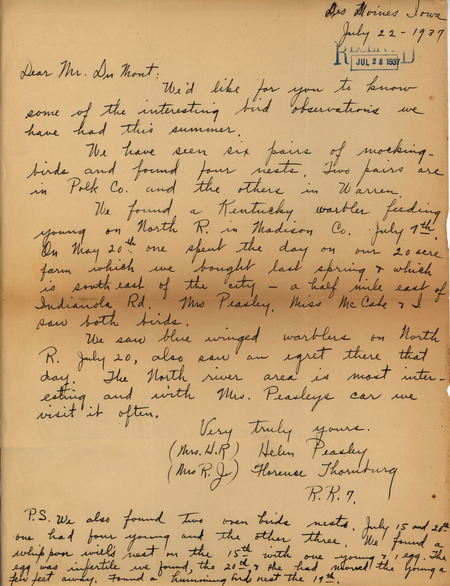 Des Moines Iowa
July 22 - 1937
RECEIVED
JUL 28 1937
Dear Mr. Du Mont:
We'd like for you to know
some of the interesting bird observations we
have had this summer.
We have seen six pairs of mocking-
birds and found four nests. Two pairs are
in Polk Co. and the others in Warren.
We found a Kentucky warbler feeding
young on North R. in Madison Co. July 7th.
On May 20th one spent the day on our 20 acre
farm which we bought last spring & which
is southeast of the city - a half mile east of
Indianola Rd. Mrs Peasley, Miss McCabe & I
saw both birds.
We saw blue winged warblers on North
R. July 20, also saw an egret there that
day. The North river area is most inter-
esting and with Mrs. Peasleys car we
visit it often.
Very truly yours.
(Mrs. H.R) Helen Peasley
(Mrs R. Jr) Florence Thornburg
R.R. 7.
P.S. We also found two oven birds nests. July 15 and 20th
one had four young and the other three. We found a
whippoorwill's nest on the 15th with one young & 1 egg. The
egg was infertile we found, the 20th, & she had moved the young a
few feet away. Found a humming bird nest the 19th.